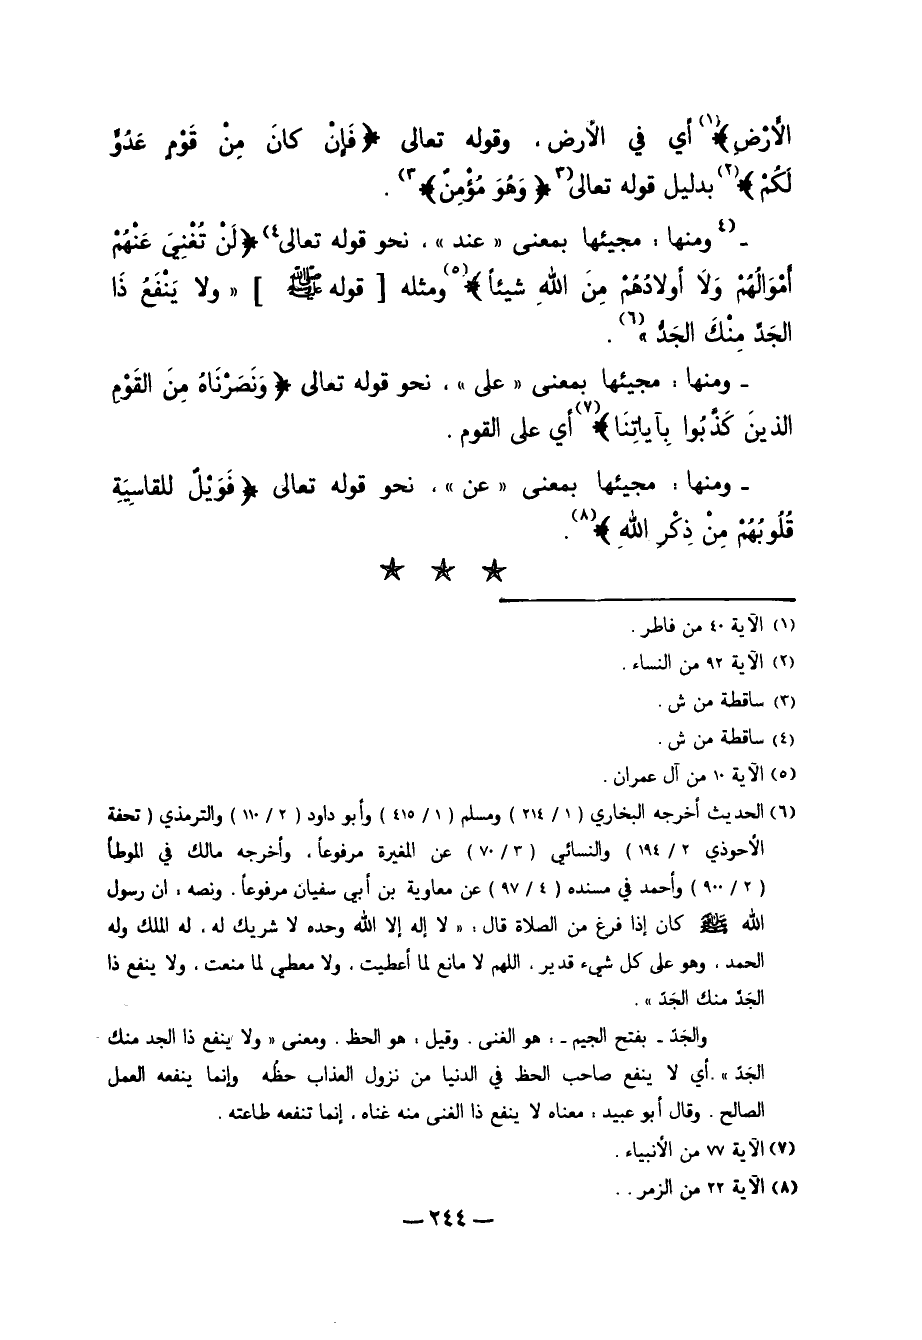 الأَرْضِ﴾(١) أي في الأرض، وقوله تعالى ﴿فَإِنْ كانَ مِنْ قَوْمٍ عَدُوٍّ
لَكُمْ﴾(٢) بدليل قوله تعالى(٣ ﴿وَهُوَ مُؤْمِنٌ﴾٣).
ـ(٤ ومنها: مجيئها بمعنى «عند»، نحو قوله تعالى٤) ﴿لَنْ تُغْنِيَ عَنْهُمْ
أمْوَالُهُمْ وَلَا أولادُهُمْ مِنَ اللهِ شيئاً﴾(٥) ومثله [ قوله ﷺ ] « ولا يَنْفَعُ ذَا
الجَدِّ مِنْكَ الجَدُّ »(٦).
ـ ومنها: مجيئها بمعنى «على»، نحو قوله تعالى ﴿وَنَصَرْنَاهُ مِنَ القَوْمِ
الذينَ كَذَّبُوا بِآياتِنَا﴾(٧) أي على القوم.
ـ ومنها: مجيئها بمعنى «عن»، نحو قوله تعالى ﴿فَوَيْلٌ للقاسِيَةِ
قُلُوبُهُمْ مِنْ ذِكْرِ اللهِ﴾(٨).
★ ★ ★
(١) الآية ٤٠ من فاطر.
(٢) الآية ٩٢ من النساء.
(٣) ساقطة من ش.
(٤) ساقطة من ش.
(٥) الآية ١٠ من آل عمران.
(٦) الحديث أخرجه البخاري (١ / ٢١٤) ومسلم (١ / ٤١٥) وأبو داود (٢ / ١١٠) والترمذي (تحفة
الأحوذي ٢ / ١٩٤) والنسائي (٣ / ٧٠) عن المغيرة مرفوعاً، وأخرجه مالك في الموطأ
(٢ / ٩٠٠) وأحمد في مسنده (٤ / ٩٧) عن معاوية بن أبي سفيان مرفوعاً. ونصه: ان رسول
الله ﷺ كان إذا فرغ من الصلاة قال: « لا إله إلا الله وحده لا شريك له، له الملك وله
الحمد، وهو على كل شيء قدير، اللهم لا مانع لما أعطيت، ولا معطي لما منعت، ولا ينفع ذا
الجَدّ منك الجَدّ ».
والجَدّ ـ بفتح الجيم ـ: هو الغنى. وقيل: هو الحظ. ومعنى « ولا ينفع ذا الجد منك
الجَدّ ». أي لا ينفع صاحب الحظ في الدنيا من نزول العذاب حظُه وإنما ينفعه العمل
الصالح. وقال أبو عبيد: معناه لا ينفع ذا الغنى منه غناه، إنما تنفعه طاعته.
(٧) الآية ٧٧ من الأنبياء.
(٨) الآية ٢٢ من الزمر..
— ٢٤٤ —